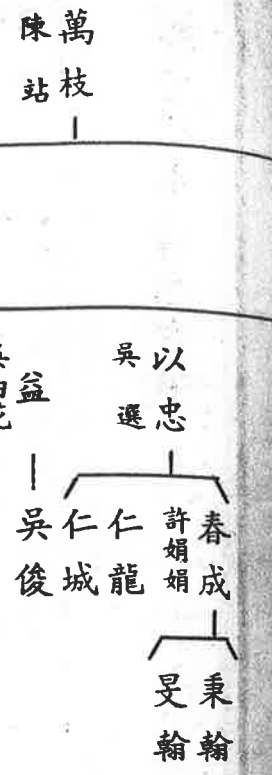 萬枝
陳站
以忠
吳選
益
春成
許娟娟
仁龍
仁城
吳俊
秉翰
旻翰